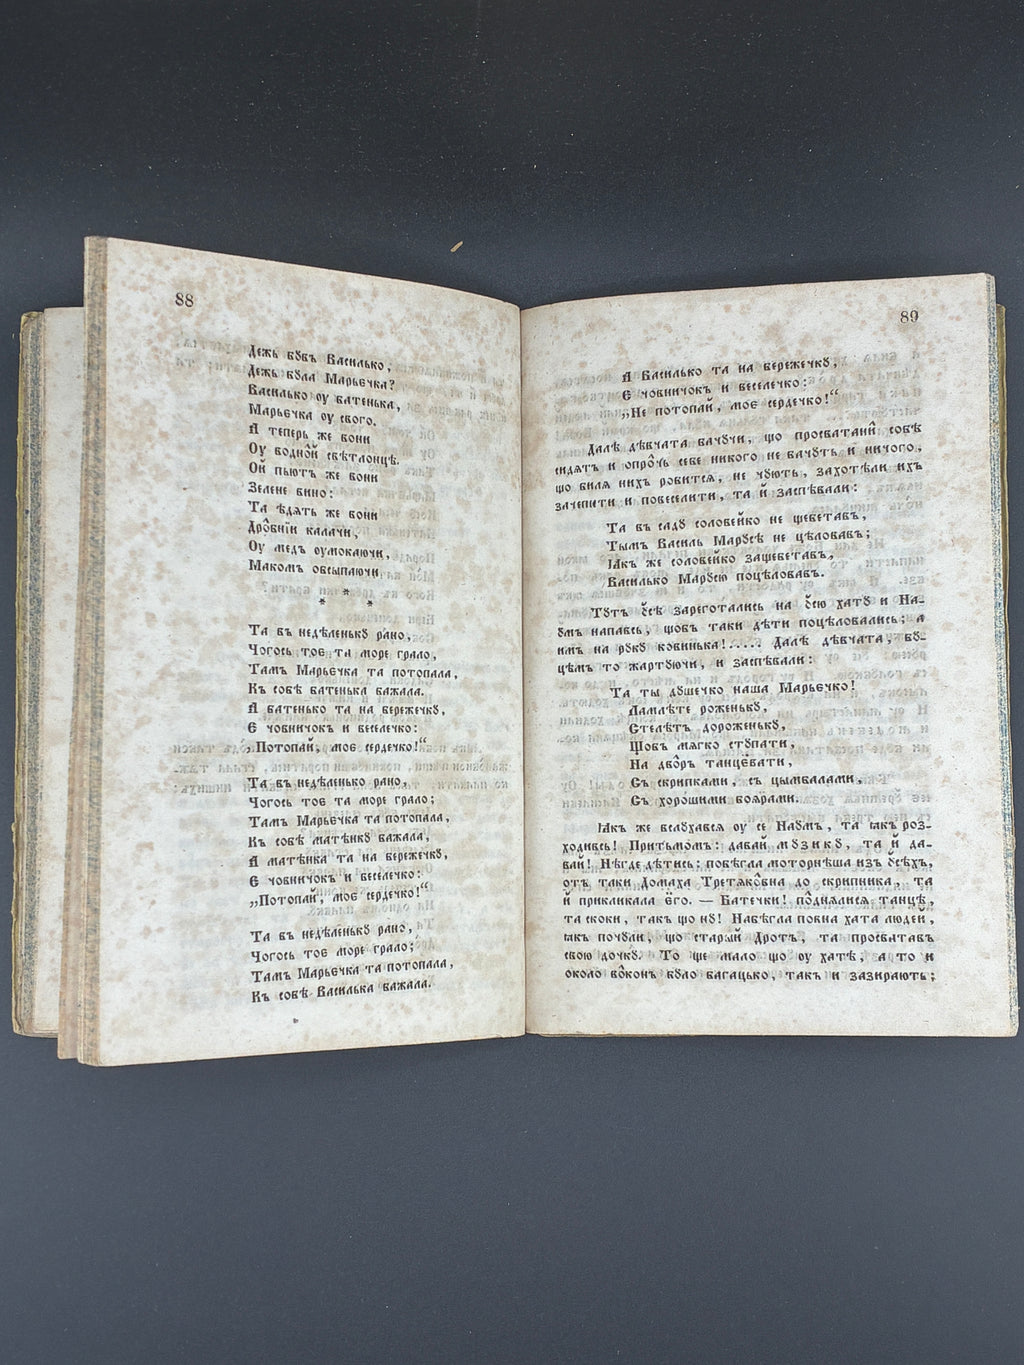 88
Дежь бꙋвъ Василько,
Дежь бꙋла Марьєчка?
Василько оу батенька,
Марьєчка оу свого.
А теперь же вони
Оу водно̂й свѣтлонцѣ.
Ой пьютъ же вони
Зелене вино:
Та ѣдять же вони
Дро̂бніи калачи,
Оу медъ оумокаючи,
Маком обсыпаючи.
* * *
Та въ недѣленькꙋ рано,
Чогось тоє та море грало,
Тамъ Марьєчка та потопала,
Къ собѣ батенька бажала.
А батенько та на бережечкꙋ,
Є човничокъ и веселечко:
„Потопай, моє сердечко!“
Та въ недѣленько рано,
Чогось тоє та море грало;
Тамъ Марьєчка та потопала,
Къ собѣ матѣнкꙋ бажала,
А матѣнка та на бережечкꙋ,
Є човничокъ и веселечко:
„Потопай, моє сердечко!“
Та въ недѣленькꙋ рано,
Чогось тоє море грало;
Тамъ Марьєчка та потопала,
Къ собѣ Василька бажала.
89
А Василько та на бережечкꙋ,
Є човничокъ и веселечко:
„Не потопай, моє сердечко!“
Далѣ дѣвчата бачꙋчи, що просватаніи̂ собѣ
сидятъ и опро̂чь себе никого не бачꙋть и ничого,
що биля нихъ робится, не чꙋють, захотѣли ихъ
зачепити и повеселити, та й заспѣвали:
Та въ садꙋ соловейко не щебетавъ,
Тымъ Василь Марꙋсѣ не цѣловавъ;
Ꙗкъ же соловейко защебетавъ,
Василько Марꙋсю поцѣловавъ.
Тꙋтъ ꙋсѣ зареготались на ꙋсю хатꙋ и На-
ꙋмъ напавсь, щобъ таки дѣти поцѣловались; а
имъ на рꙋкꙋ ковинька!..... Далѣ дѣвчата, бꙋ-
цѣмъ то жартꙋючи, и заспѣвали:
Та ты дꙋшечко наша Марьєчко!
Ламлѣте роженькꙋ,
Стелѣтъ дороженькꙋ,
Щобъ мягко стꙋпати,
На дво̂ръ танцёвати,
Съ скрипками, съ цымбалами,
Съ хорошими боярами.
Ꙗкъ же вслꙋхався оу се Наꙋмъ, та ꙗкъ роз-
ходивсь! Притьмомъ: давай мꙋзикꙋ, та й да-
вай! Нѣгде дѣтись; побѣгла моторнѣша изъ ꙋсѣхъ,
отъ таки Домаха Третяко̂вна до скрипника, та
й прикликала ёго. — Батечки! по̂днялися танцѣ,
та скоки, такъ що нꙋ! Набѣгла повна хата людей,
ꙗкъ почꙋли, що старый Дротъ, та просватавъ
свою дочкꙋ. То ще мало що оу хатѣ, а то и
около во̂конъ бꙋло багацько, такъ и зазирають;